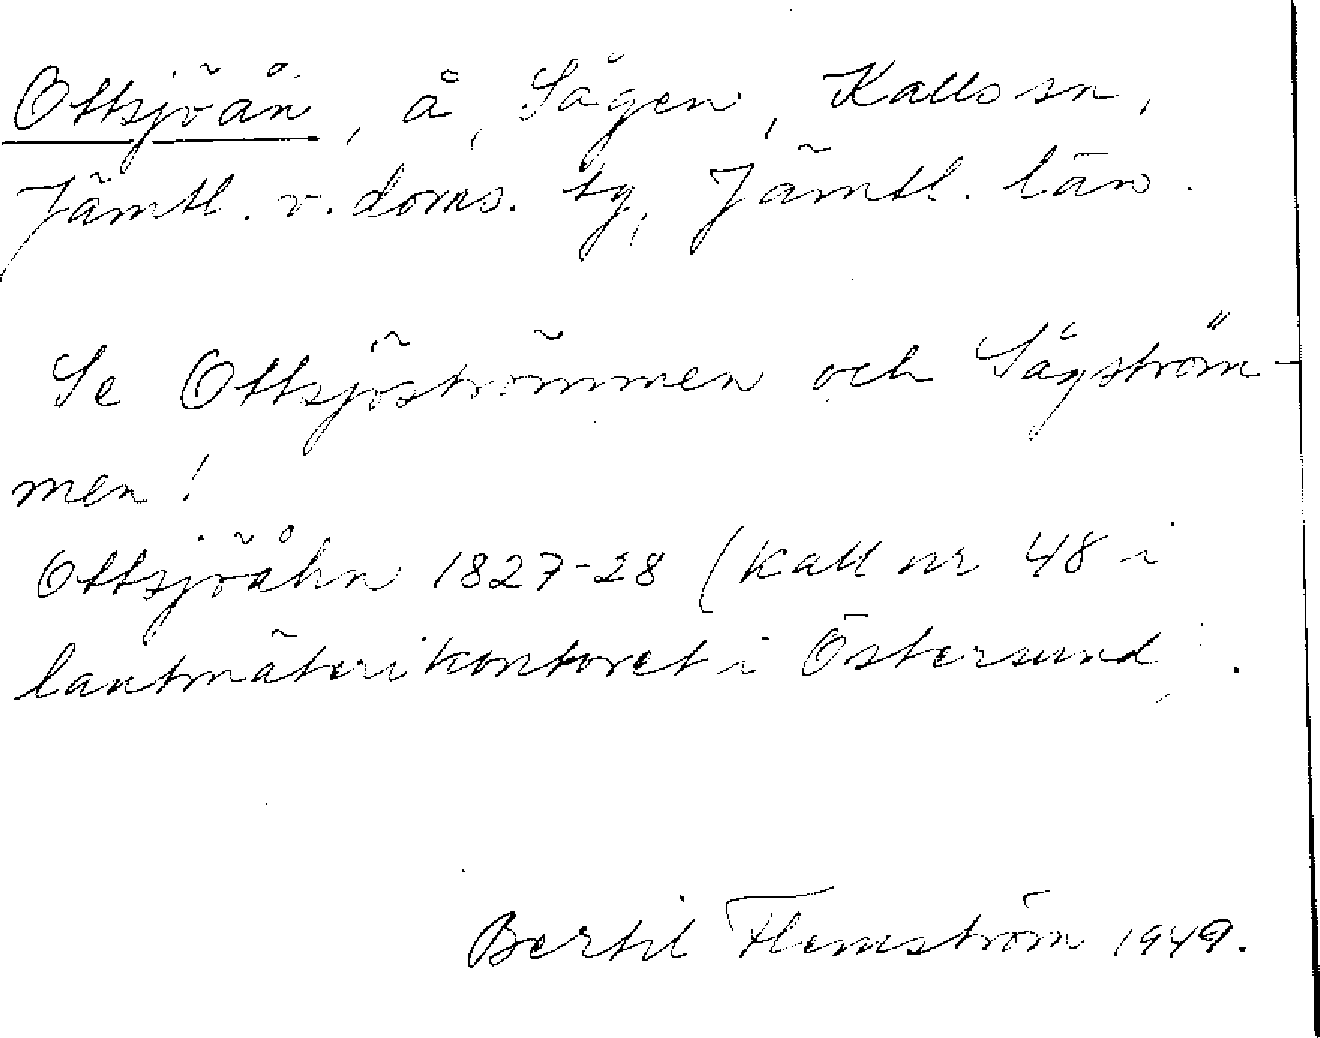 Ottsjöån, å, Sågen, Kalls sn,
Jämtl. v. doms. tg, Jämtl. län.
Se Ottsjöströmmen och Sågström-
men!
Ottsjöåhn 1827-28 (Kall nr 48 i
lantmäterikontoret i Östersund).
Bertil Flemström 1949.